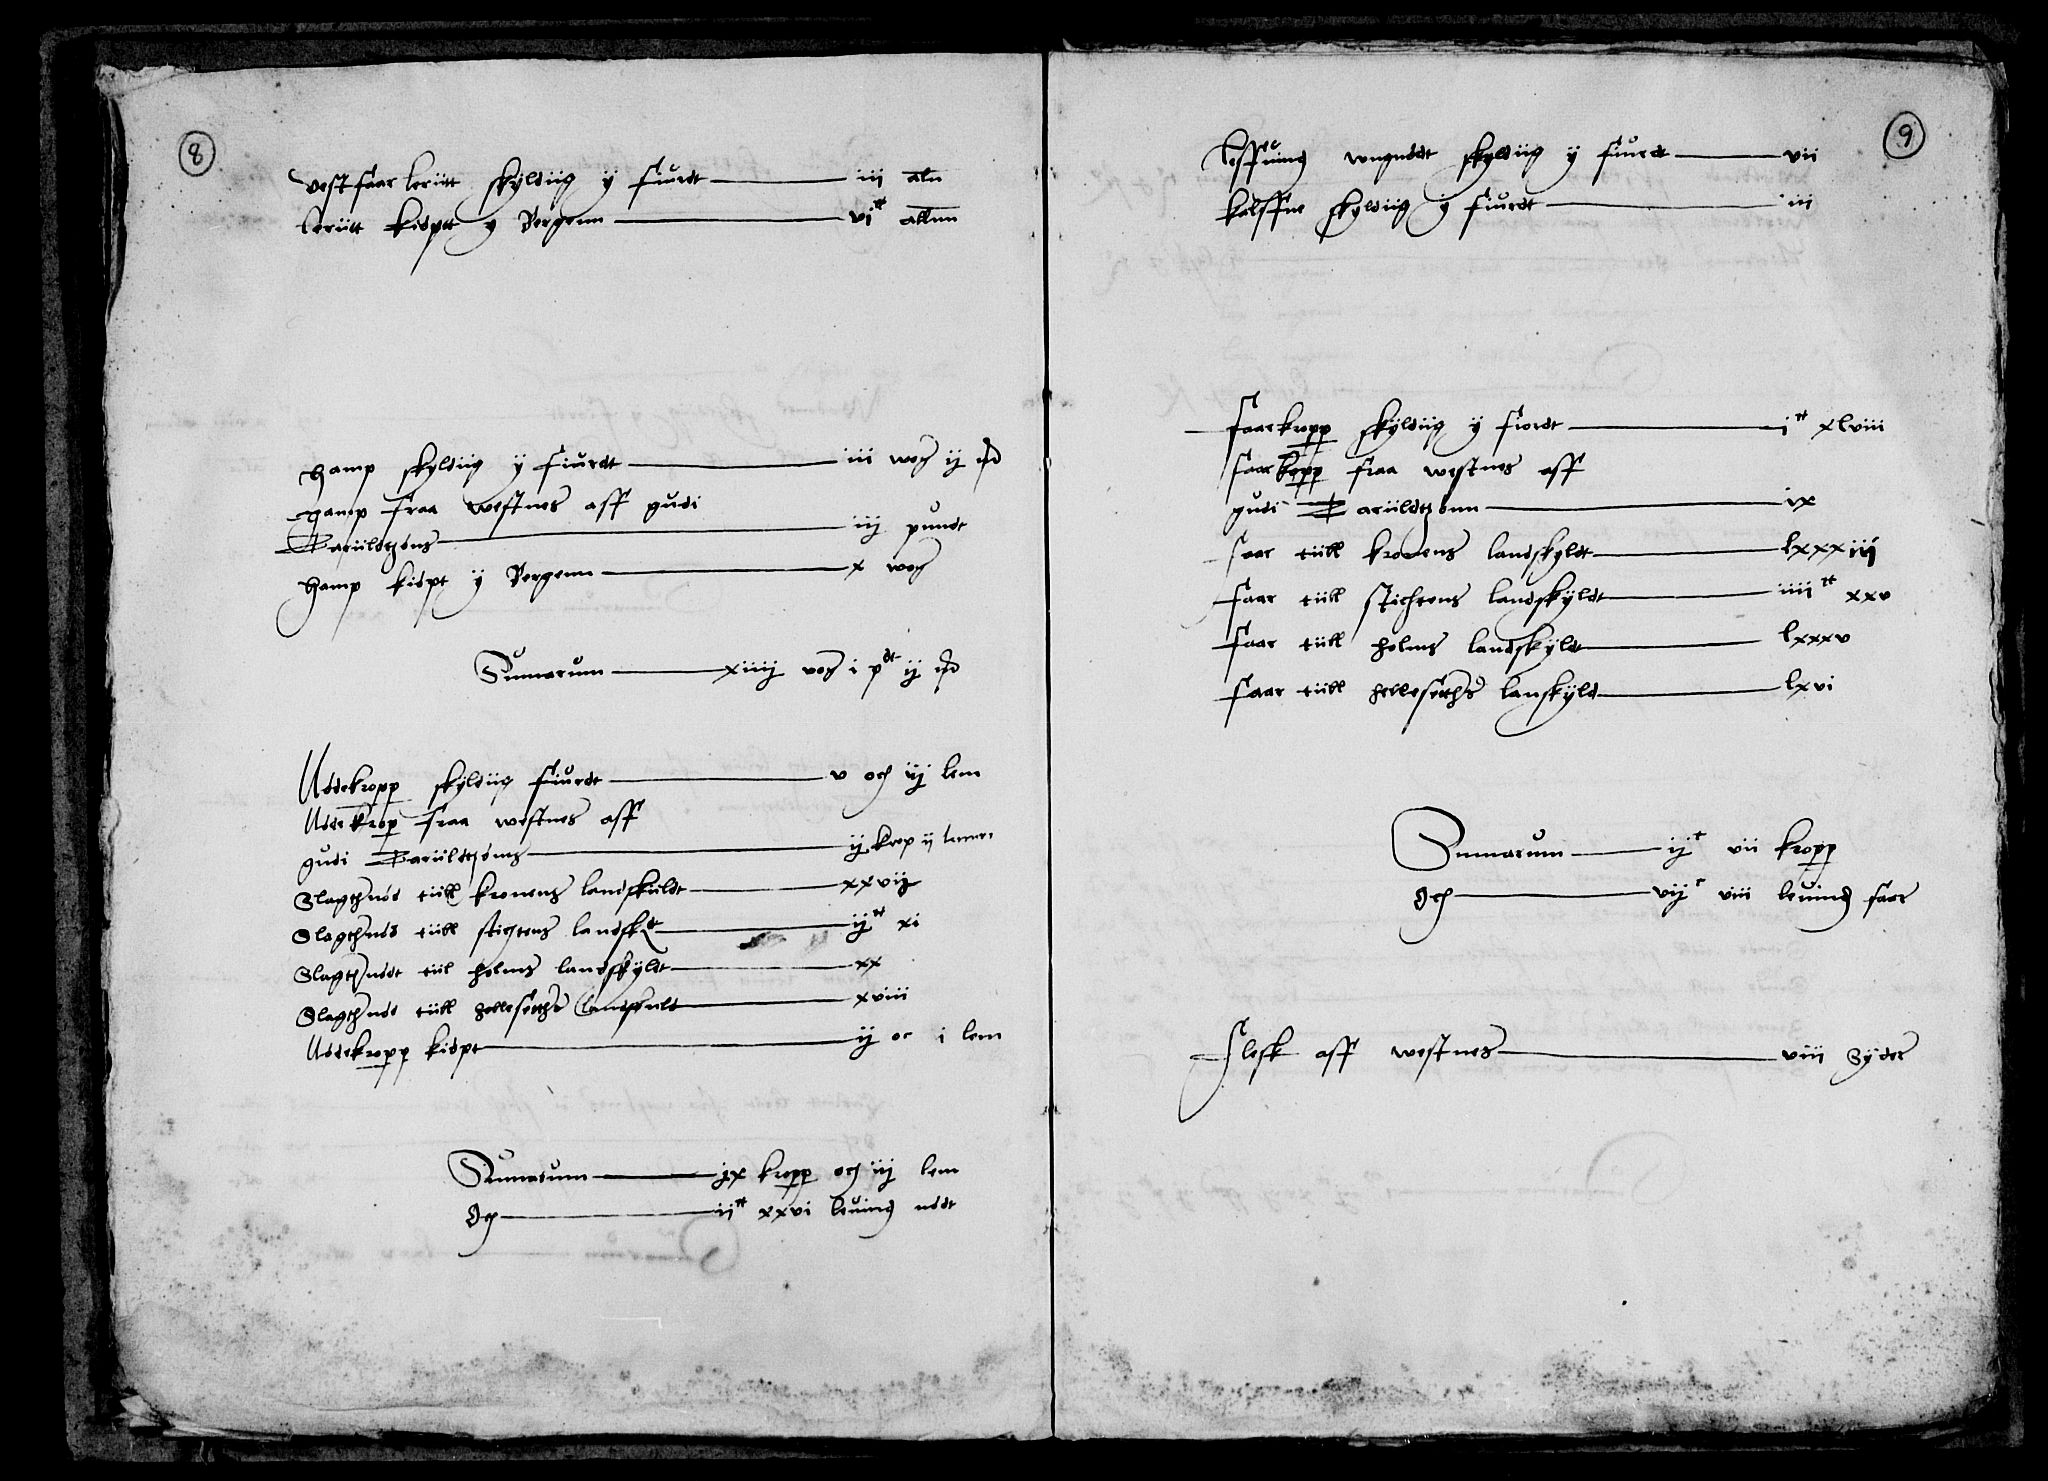 8
vestfaar leriitt skyldiig y fiurdt iii aln
leriitt kiøptt y Bergenn vi^tt allnn
Hamp skyldiig y fiurdt iii wog ij
Hamp fraa westnes aff gudi
Hariildtzøns iij pundt
Hamp kiøpt y Bergenn x wog
Summarum xiiij vog i p^dt ij
Nødekropp skyldiig fiurdt v och iij lem
Nødekrop fraa westnes aff
gudi Hariildtzøns ij krop ij lemer
Slagthnød tiill kronens landskiildt xxvij
Slagthnød tiill stichtens landskldt ij^tt xi
Slagthnødt tiil holms landskyldt xx
Slagthnød tiill hellesetthz landskuldt xviii
Nødekropp kiøpt ij oc i lem
Summarum ix kropp och iij lem
Och ii^tt xxvi leuind nødt
9
kalffue skyldiig y fiurdt iii
Faarkropp skyldiig y fiordt i^tt xlviii
Faarkropp fraa westnes aff
gudi Hariildtzønn ix
Faar tiill kronens landskyldt lxxxiij
Faar tiill stichtens landskyldt iiii^tt xxv
Faar tiill holms landskyldt lxxxv
Faar tiill hellesetthz lanskyld lxvi
Summarum ij^t vii kropp
Och vij^t viii leuind faar
Flesk aff westnes viii syder